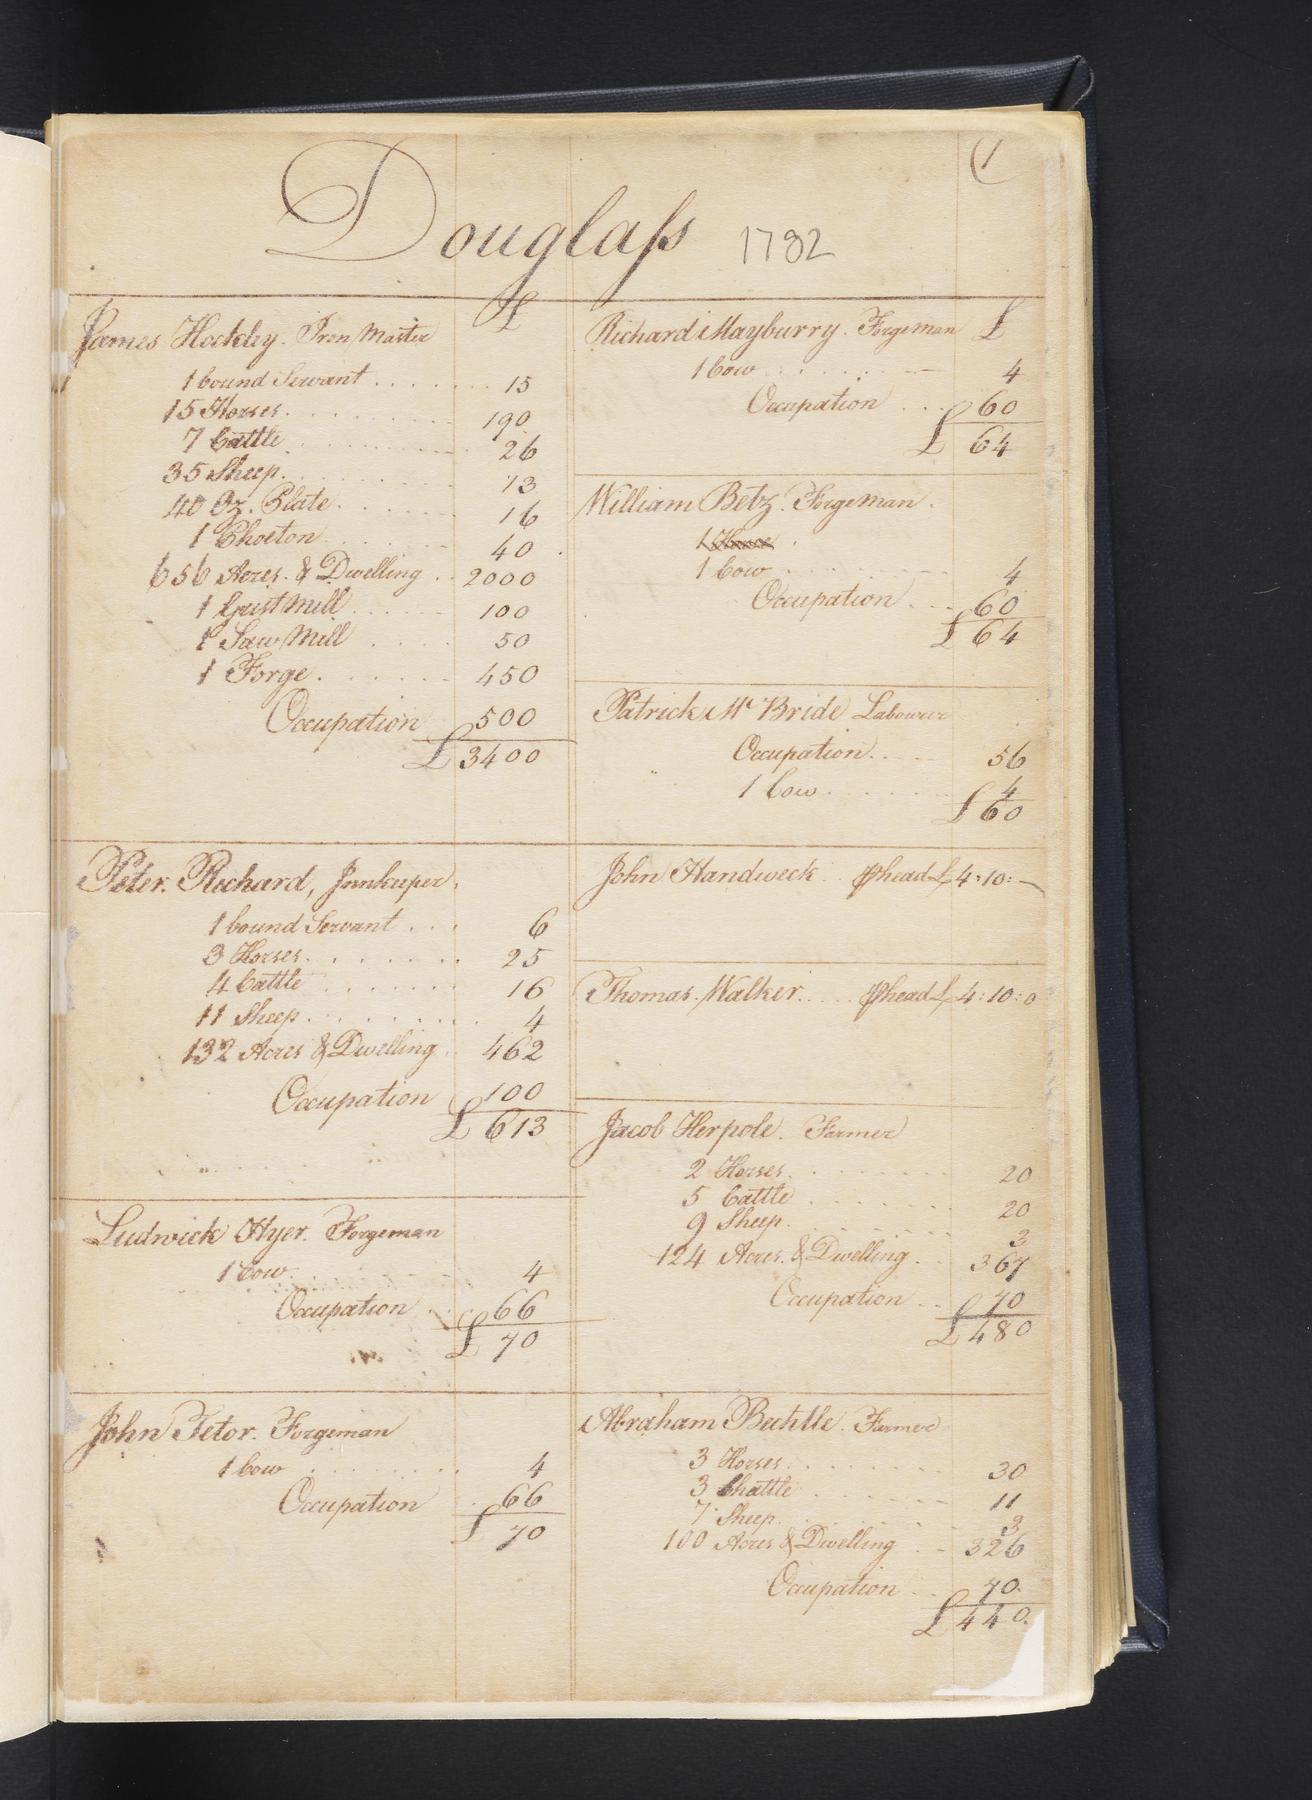 (1
Douglass 1782
£
James Hockley. Iron Master
1 bound Servant 15
15 Horses 190
7 Cattle 26
35 Sheep 13
40 Oz. Plate 16
1 Phoeton 40
656 Acres. & Dwelling 2000
1 Grist Mill 100
1 Saw Mill 50
1 Forge 450
Occupation 500
£ 3400
Peter Richard, Innkeeper.
1 bound Servant 6
3 Horses 25
4 Cattle 16
11 Sheep 4
132 Acres & Dwelling 462
Occupation 100
£ 613
Ludwick Hyer. Forgeman
1 Cow 4
Occupation 66
£ 70
John Tetor. Forgeman
1 Cow 4
Occupation 66
£ 70
Richard Mayburry. Forgeman £
1 Cow 4
Occupation 60
£ 64
William Betz. Forgeman.
1 Cow 4
Occupation 60
£ 64
Patrick Mc Bride Labourer
Occupation 56
1 Cow 4
£ 60
John Handweck ⅌ head £ 4:10:—
Thomas Walker ⅌ head £ 4:10:0
Jacob Herpole. Farmer
2 Horses 20
5 Cattle 20
9 Sheep 3
124 Acres. & Dwelling 367
Occupation 70
£ 480
Abraham Bechtle. Farmer
3 Horses 30
3 Chattle 11
7 Sheep 3
100 Acres & Dwelling 326
Occupation 70.
£ 440.